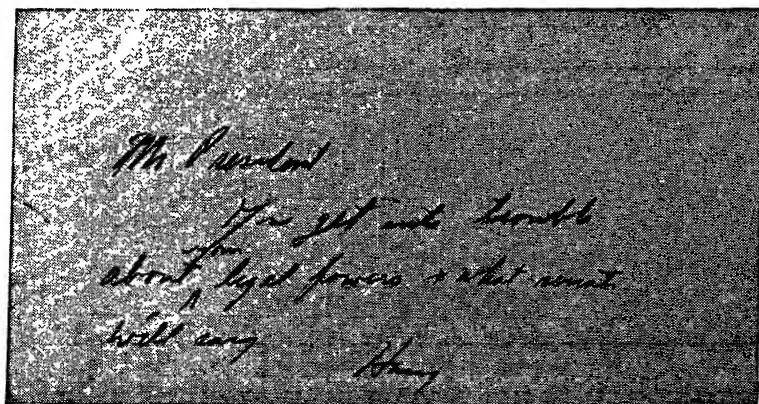 Mr President
You get into trouble
about your legal powers & what senate
will say
Harry